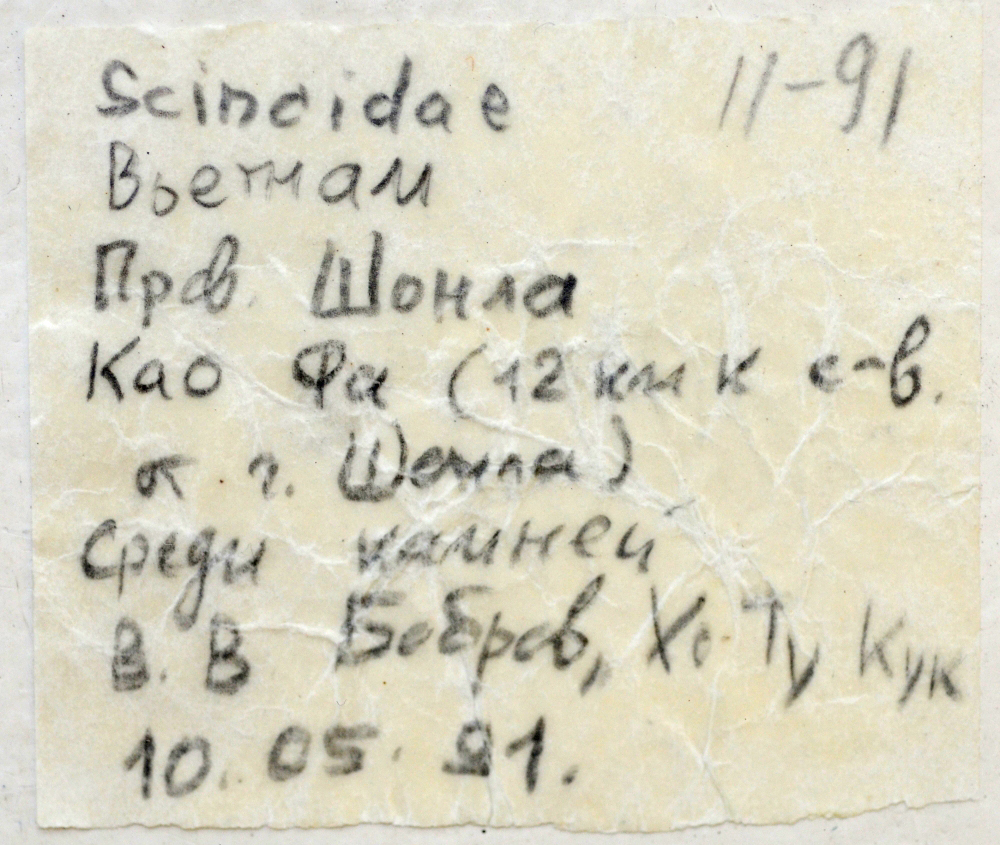 Scincidae 11-91
Вьетнам
Пров. Шонла
Као Фа (12 км к с-в.
от г. Шонла)
Среди камней
В. В Бобров, Хо Ту Кук
10. 05. 91.